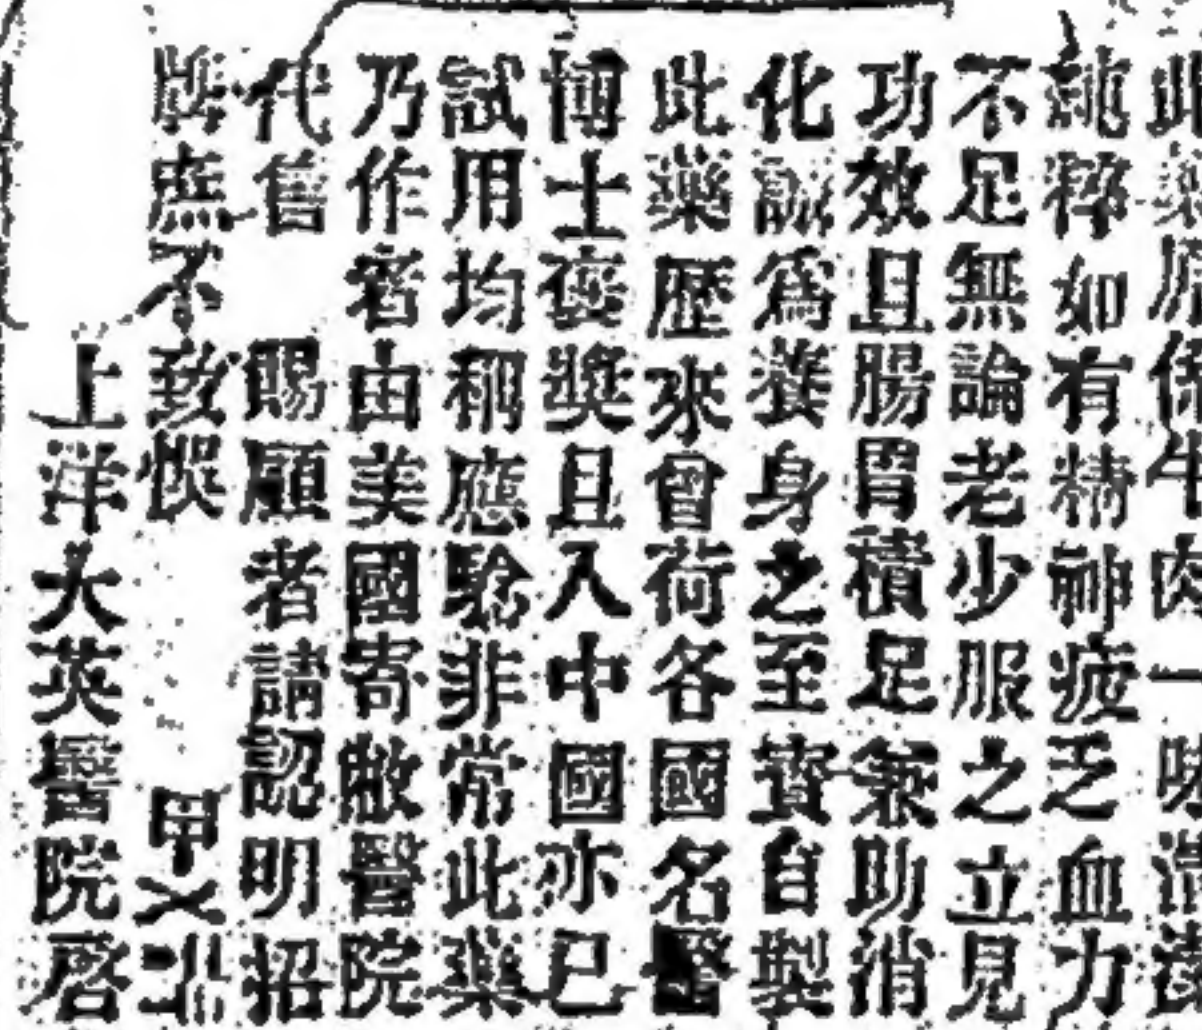 此藥原係牛肉一味
純粹如有精神疲乏血力
不足無論老少服之立見
功效且腸胃積足兼助消
化誠爲養身之至寶自製
此藥歷來曾荷各國名醫
博士褒獎且入中國亦已
試用均稱應騐非常此藥
乃作者由美國寄敝醫院
代售 賜顧者請認明招
牌庶不致悞 甲
上洋大英醫院啓